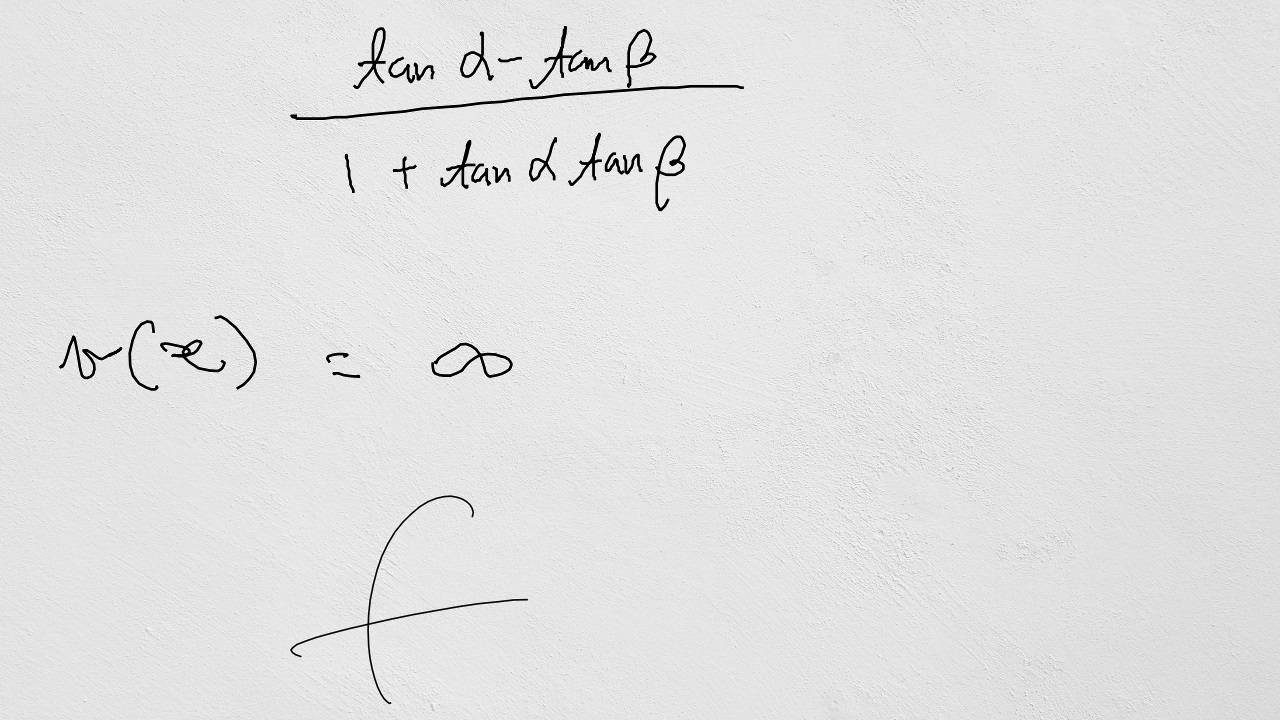 tan α - tan β / 1 + tan α tan β
v(x) = ∞
f